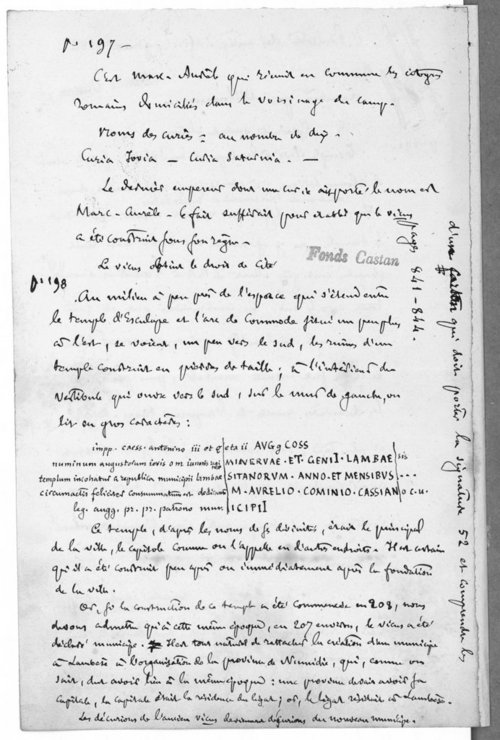 p. 197 —
C'est Marc-Aurèle qui réunit en commune les citoyens
romains domiciliés dans le voisinage du camp.
Noms des curies : au nombre de dix.
Curia Jovia — Curia Saturnia. —
Le dernier empereur dont une curie ait porté le nom est
Marc-Aurèle. Le fait suffirait pour établir que le vicus
a été construit sous son règne.
Le vicus obtint le droit de Cité
p. 198
Au milieu à peu près de l'espace qui s'étend entre
le temple d'Esculape et l'arc de Commode situé un peu plus
à l'est, se voient, un peu vers le sud, les ruines d'un
temple construit en pierres de taille, à l'intérieur du
vestibule qui ouvre vers le sud, sur le mur de gauche, on
lit en gros caractères :
impp. caess. antonino iii et geta ii AVGG COSS
numinum augustorum iovis o m iunonis reg MINERVAE · ET · GENII · LAMBAE sis
templum incohatum a republica municipii lambae SITANORVM · ANNO · ET MENSIBVS ...
circumactis feliciter consummatum est dedicante M · AVRELIO · COMINIO · CASSIANO c. u.
leg. augg. pr. pr. patrono mun ICIPII
Ce temple, d'après les noms de ses divinités, était le principal
de la ville, le capitole comme on l'appelle en d'autres endroits. Il est certain
qu'il a été construit peu après ou immédiatement après la fondation
de la ville.
Or, si la construction de ce temple a été commencée en 208, nous
devons admettre qu'à cette même époque, en 207 environ, le vicus a été
déclaré municipe. Il est tout naturel de rattacher la création d'un municipe
à Lambèse à l'organisation de la province de Numidie, qui, comme on
sait, dut avoir lieu à la même époque : une province devait avoir sa
Capitale, la capitale était la résidence du légat ; or, le légat résidait à Lambèse.
Les décurions de l'ancien vicus devinrent décurions du nouveau municipe.
Fonds Castan
pages 841-844.
d'une qui doit porter la signature 52 et comprendre les